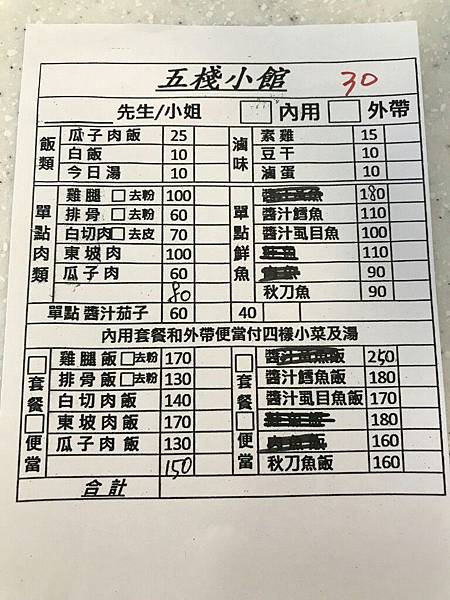 五棧小館 30
先生/小姐 □內用 □外帶
飯類 瓜子肉飯 25 滷味 素雞 15
白飯 10 豆干 10
今日湯 10 滷蛋 10
單點肉類 雞腿 □去粉 100 單點鮮魚 180
排骨 □去粉 60 醬汁鱈魚 110
白切肉 □去皮 70 醬汁虱目魚 100
東坡肉 100 110
瓜子肉 60 90
80 秋刀魚 90
單點 醬汁茄子 60 40
內用套餐和外帶便當付四樣小菜及湯
□套餐 □便當 雞腿飯 □去粉 170 □套餐 □便當 醬汁黃魚飯 250
排骨飯 □去粉 130 醬汁鱈魚飯 180
白切肉飯 140 醬汁虱目魚飯 170
東坡肉飯 170 180
瓜子肉飯 130 160
150 秋刀魚飯 160
合計